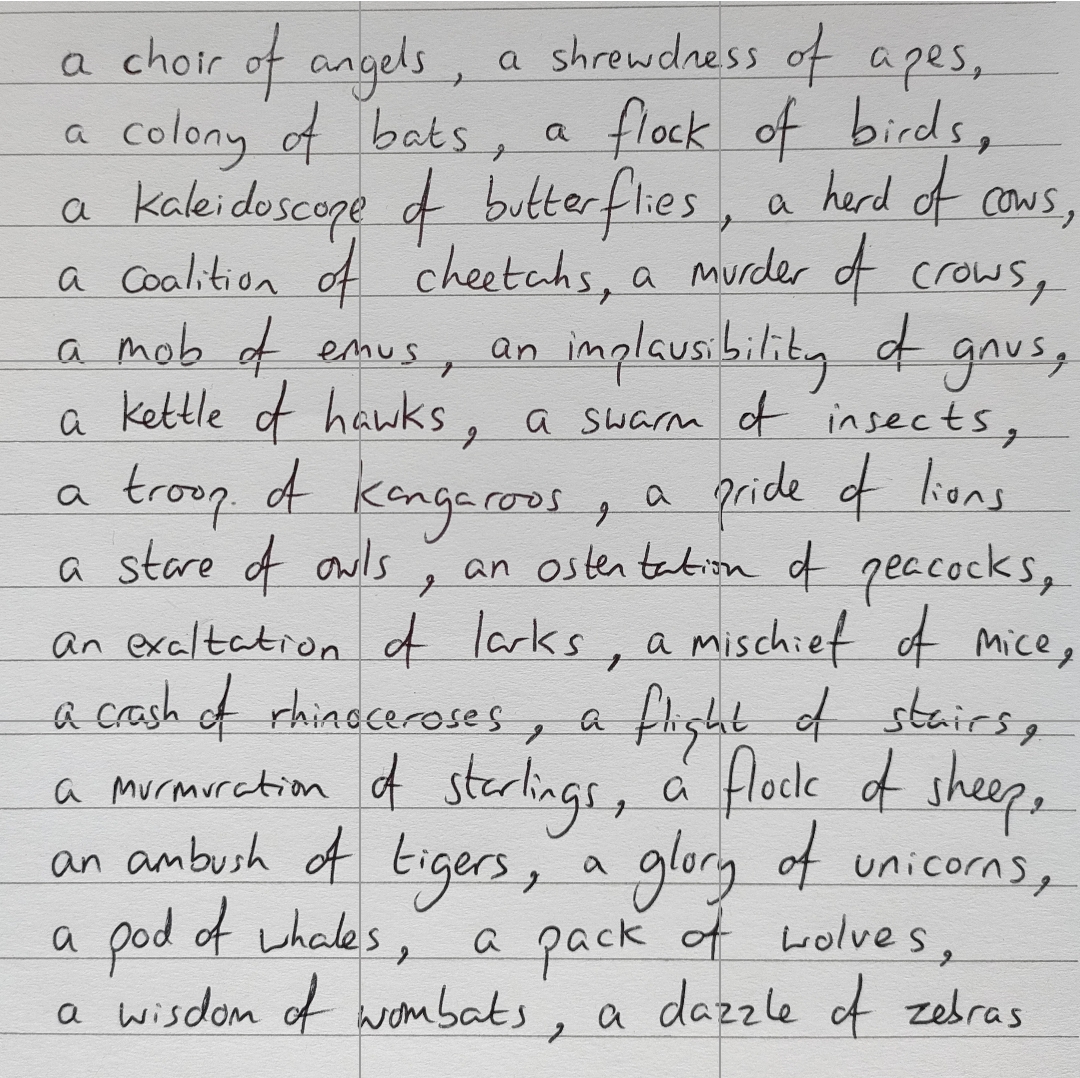 a choir of angels, a shrewdness of apes,
a colony of bats, a flock of birds,
a kaleidoscope of butterflies, a herd of cows,
a coalition of cheetahs, a murder of crows,
a mob of emus, an implausibility of gnus,
a kettle of hawks, a swarm of insects,
a troop. of kangaroos, a pride of lions
a stare of owls, an ostentation of peacocks,
an exaltation of larks, a mischief of mice,
a crash of rhinoceroses, a flight of stairs,
a murmuration of starlings, a flock of sheep,
an ambush of tigers, a glory of unicorns,
a pod of whales, a pack of wolves,
a wisdom of wombats, a dazzle of zebras